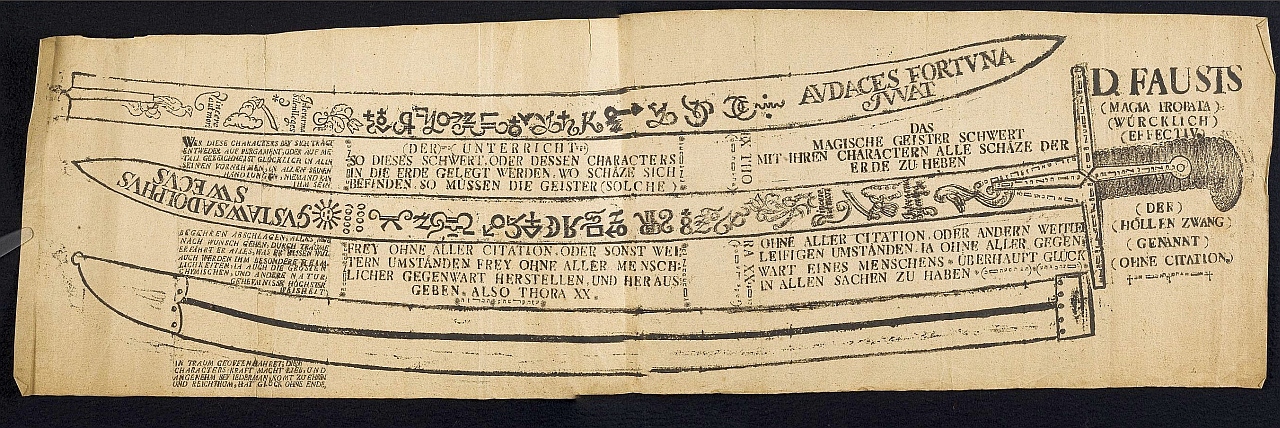 AVDACES FORTVNA
IVVAT
D. FAUSTS
(MAGIA PROBATA)
(WÜRCKLICH)
(EFFECTIV)
DAS
MAGISCHE GEISTER SCHWERT
MIT IHREN CHARACTERN ALLE SCHÄZE DER
ERDE ZU HEBEN
WER DIESE CHARACTERS BEY SICH TRÄGT
ENTWEDER AUF PERGAMENT, ODER AUF ME-
TALL GEZEICHNET IST GLÜCKLICH IN ALLN
SEINEN VORNEHMEN, IN ALLEN SEINEN
HANDLUNGEN, NIEMAND KAN
IHM SEIN
(DER) (UNTERRICHT)
SO DIESES SCHWERT, ODER DESSEN CHARACTERS
IN DIE ERDE GELEGT WERDEN, WO SCHÄZE SICH
BEFINDEN, SO MÜSSEN DIE GEISTER (SOLCHE)
X THO
GVSTAWSADOLPHVS
SWECVS
BEGEHREN ABSCHLAGEN, ALLES MUS
NACH WUNSCH GEHEN, DURCH TRÄUME
ERFÄHRT ER ALLES, WAS ER WISSEN WILL
AUCH WERDEN IHM BESONDERE
AUCH DIE GRÖSTEN
CHYMISCHEN UND ANDERE NATUR,
GEHEIMNISSE HÖCHSTER
WEISHEIT
FREY OHNE ALLER CITATION, ODER SONST WEI
TERN UMSTÄNDEN FREY OHNE ALLER MENSCH-
LICHER GEGENWART HERSTELLEN, UND HERAUS
GEBEN. ALSO THORA XX.
RA XX
OHNE ALLER CITATION, ODER ANDERN WEITH
LEIFIGEN UMSTÄNDEN, IA OHNE ALLER GEGEN
WART EINES MENSCHENS ÜBERHAUPT GLÜCK
IN ALLEN SACHEN ZU HABEN
(DER)
HÖLLEN ZWANG
(GENANNT)
(OHNE CITATION)
IN TRAUM GEOFFENBAHRET, DISE
CHARACTERS KRAFT MACHT LIEB, UND
ANGENEHM BEY IEDERMAN, KOMT ZU EHREN
UND REICHTHUM, HAT GLÜCK OHNE ENDE.